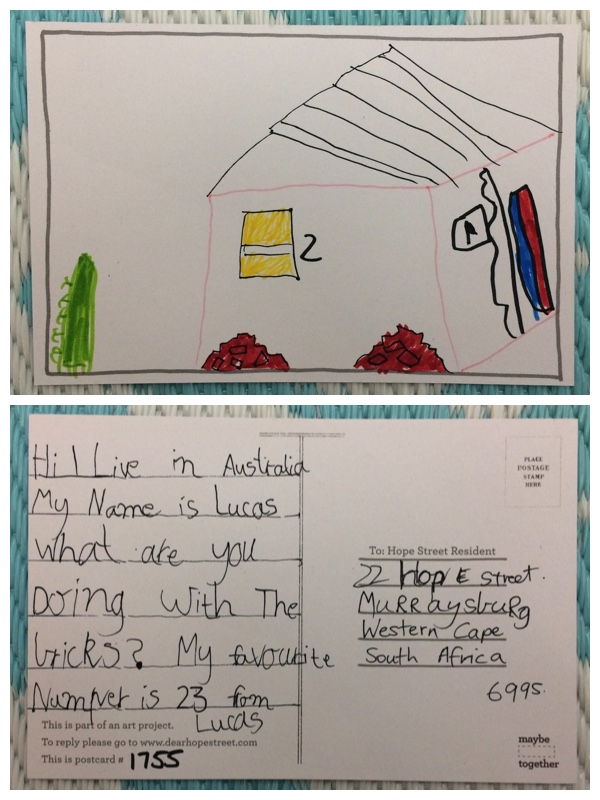 2
A
Hi I Live in Australia
My Name is Lucas
what are you
Doing With The
bricks? My favourite
Numper is 23 from
Lucas
This is part of an art project.
To reply please go to www.dearhopestreet.com
This is postcard # 1755
PLACE
POSTAGE
STAMP
HERE
To: Hope Street Resident
22 HOpE street.
MuRRaysbuRg
Western Cape
South Africa
6995.
maybe
together